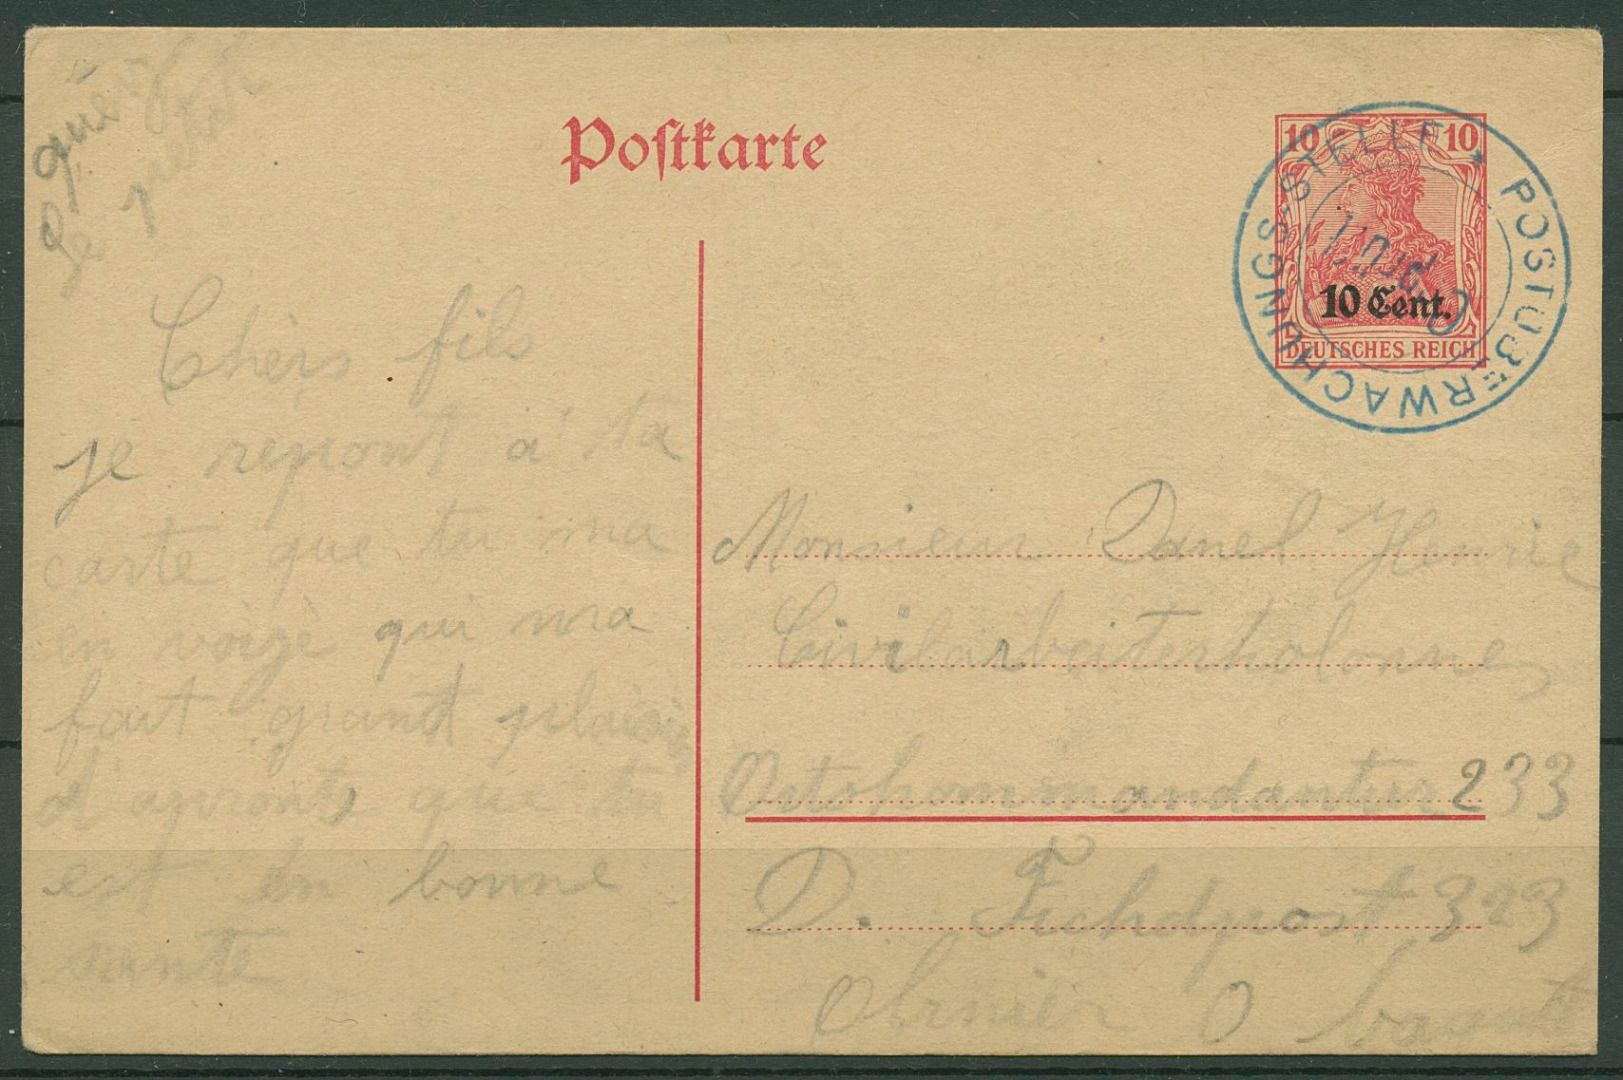 Postkarte
10 10
10 Cent.
DEUTSCHES REICH
POSTÜBERWACHUNGS-STELLE *
Chèrs fils
je repont a ta
carte que tu ma
en voizè qui ma
fait grand plaisir
d'apront que tu
est en bonne
sante
Monsieur Danel Henrie
Civilarbeiterkolonne
Ortskommandantur 233
D. Fichdpost 323